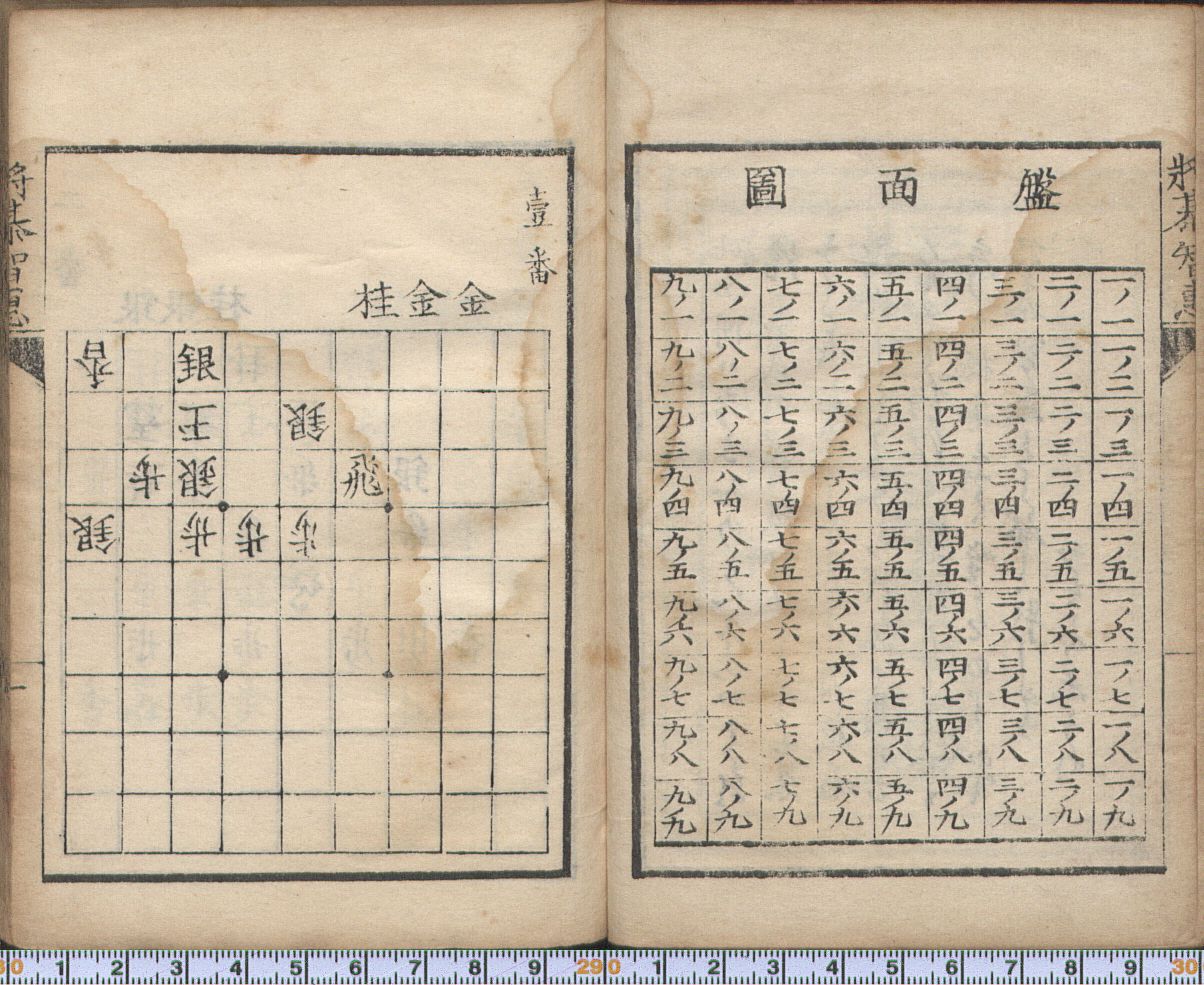 將棊智
盤面圖
一ノ一 二ノ一 三ノ一 四ノ一 五ノ一 六ノ一 七ノ一 八ノ一 九ノ一
一ノ二 二ノ二 三ノ二 四ノ二 五ノ二 六ノ二 七ノ二 八ノ二 九ノ二
一ノ三 二ノ三 三ノ三 四ノ三 五ノ三 六ノ三 七ノ三 八ノ三 九ノ三
一ノ四 二ノ四 三ノ四 四ノ四 五ノ四 六ノ四 七ノ四 八ノ四 九ノ四
一ノ五 二ノ五 三ノ五 四ノ五 五ノ五 六ノ五 七ノ五 八ノ五 九ノ五
一ノ六 二ノ六 三ノ六 四ノ六 五ノ六 六ノ六 七ノ六 八ノ六 九ノ六
一ノ七 二ノ七 三ノ七 四ノ七 五ノ七 六ノ七 七ノ七 八ノ七 九ノ七
一ノ八 二ノ八 三ノ八 四ノ八 五ノ八 六ノ八 七ノ八 八ノ八 九ノ八
一ノ九 二ノ九 三ノ九 四ノ九 五ノ九 六ノ九 七ノ九 八ノ九 九ノ九
壹番
金金桂
香
銀 王
飛 銀 歩
歩 歩 歩 銀
將棊智
一
30 1 2 3 4 5 6 7 8 9 290 1 2 3 4 5 6 7 8 9 30